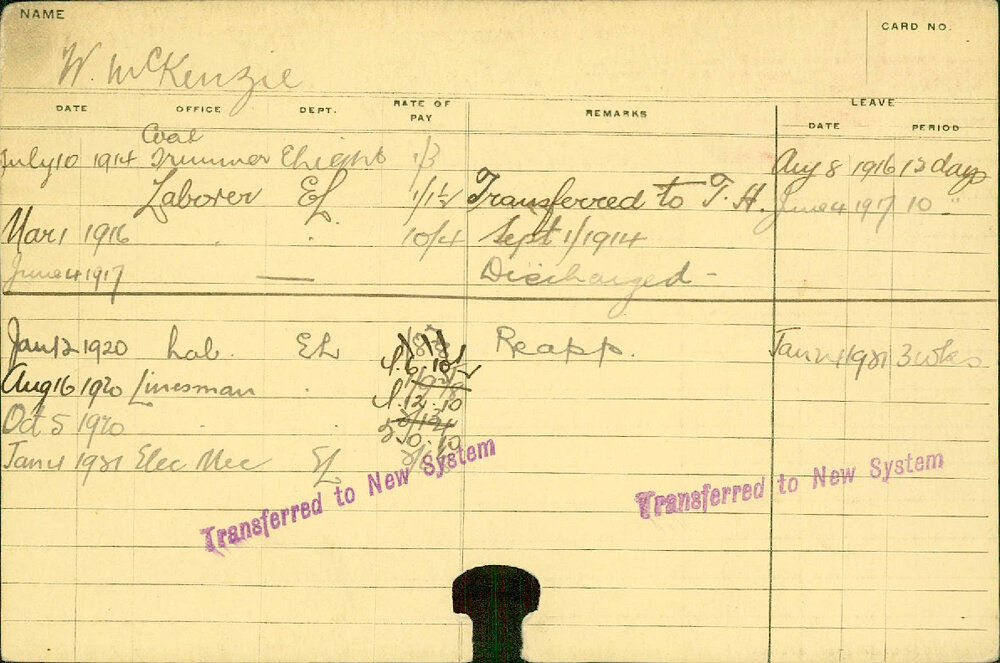 NAME
CARD NO.
W. McKenzie
DATE OFFICE DEPT. RATE OF PAY REMARKS LEAVE
DATE PERIOD
Coal
July 10 1914 Trimmer Elec 1/3 Aug 8 1916 12 days
Laborer EL 1/1½ Transferred to T.H. June 4 1917 10 "
Mar 1 1916 " " 10/4 Sept 1/1914
June 4 1917 — Discharged -
Jan 12 1920 Lab. EL Reapp. Jan 24 1921 3 wks
Aug 16 1920 Linesman "
Oct 5 1920 " "
Jan 4 1921 Elec Mec EL
Transferred to New System
Transferred to New System